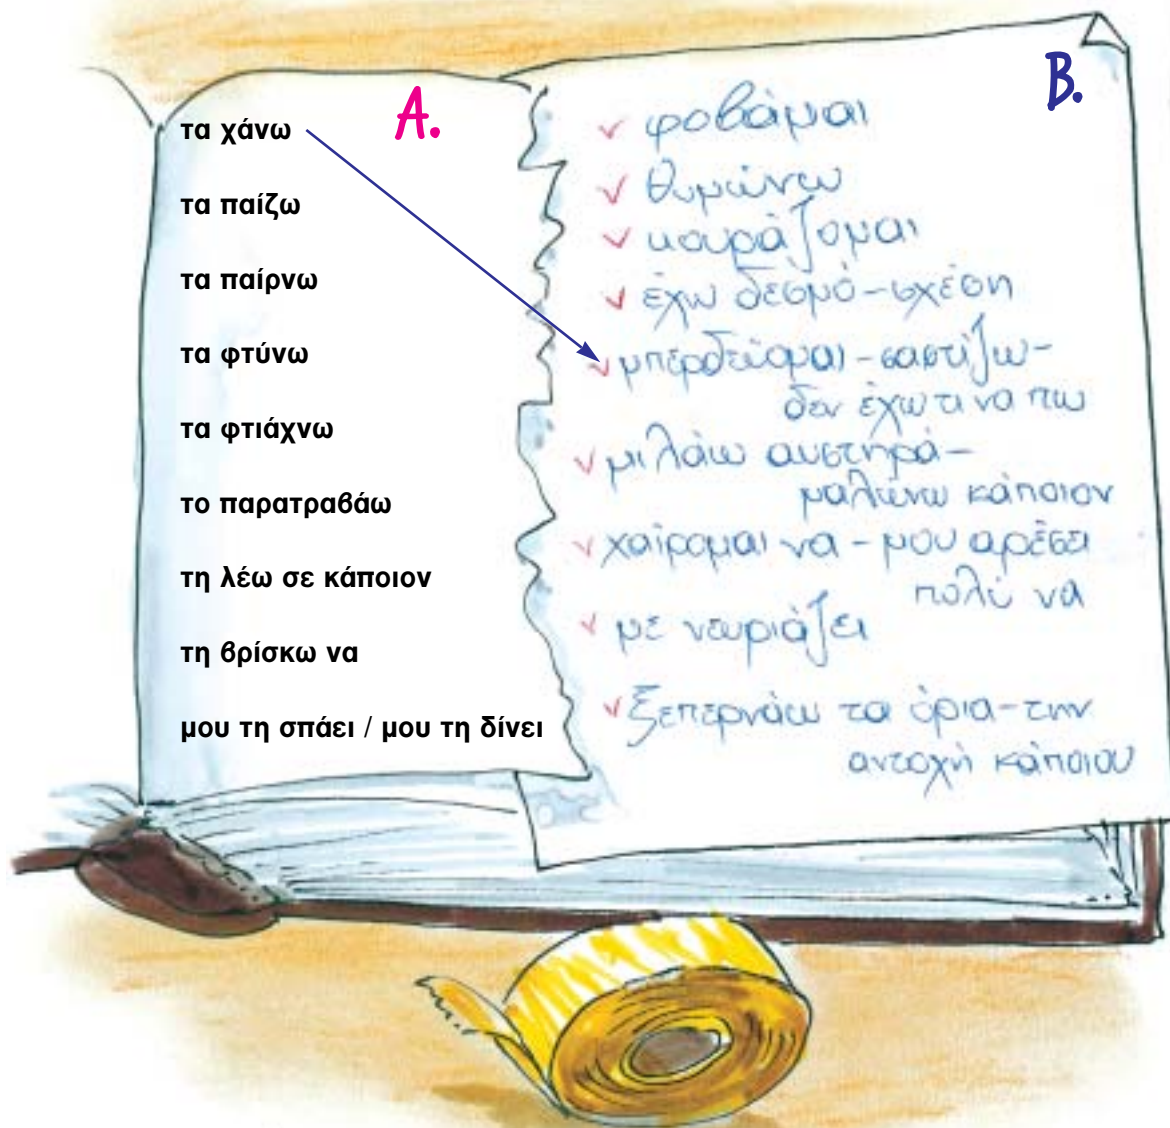 A.
τα χάνω
τα παίζω
τα παίρνω
τα φτύνω
τα φτιάχνω
το παρατραβάω
τη λέω σε κάποιον
τη βρίσκω να
μου τη σπάει / μου τη δίνει
B.
φοβάμαι
θυμώνω
κουράζομαι
έχω δεσμό-σχέση
μπερδεύομαι-σαστίζω-
δεν έχω τι να πω
μιλάω αυστηρά-
μαλώνω κάποιον
χαίρομαι να - μου αρέσει
πολύ να
με νευριάζει
ξεπερνάω τα όρια-την
αντοχή κάποιου